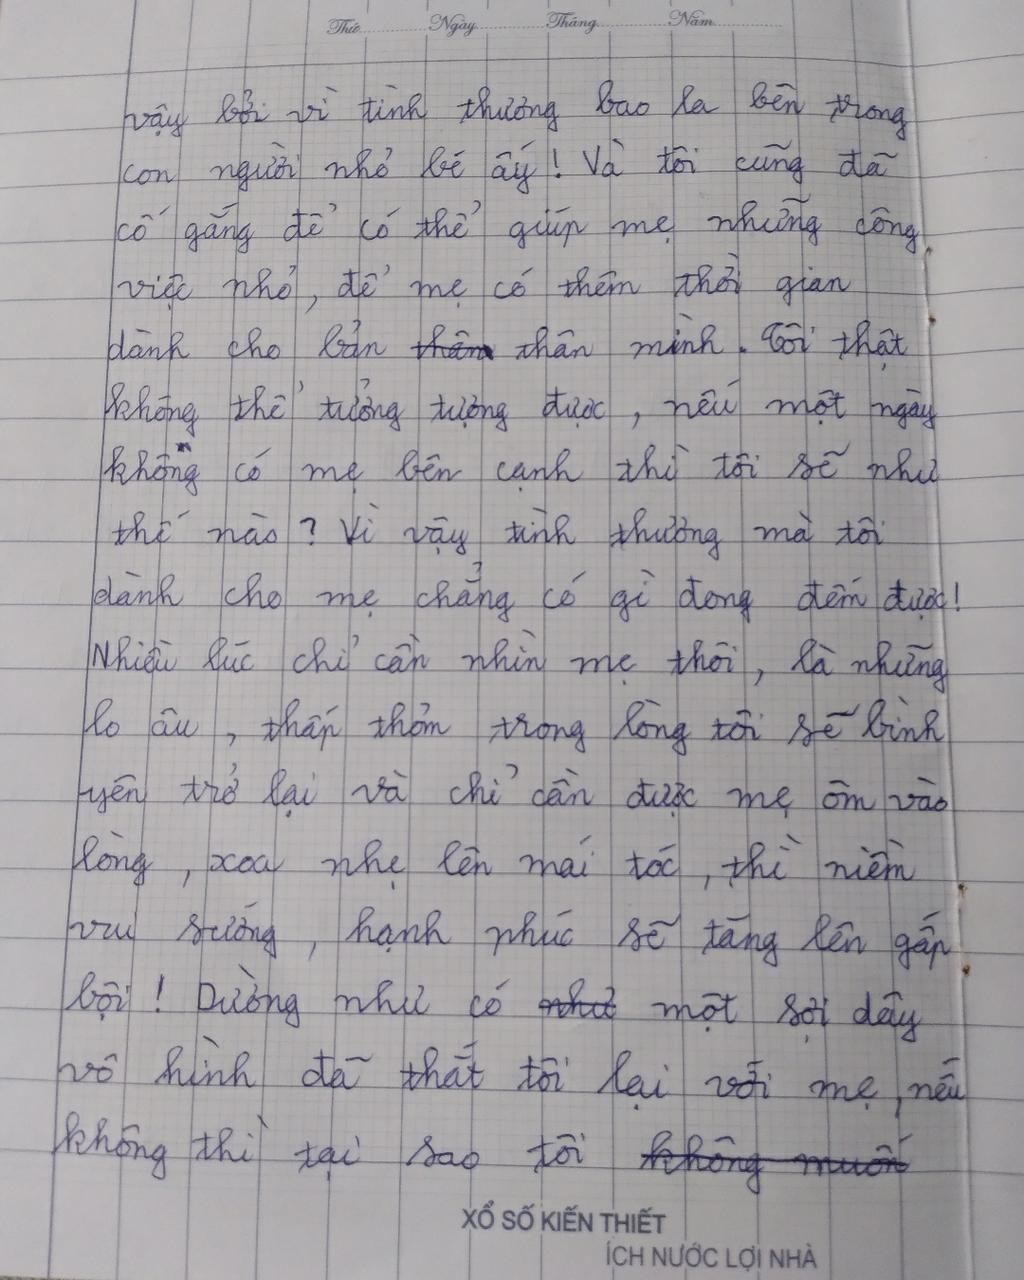 Thứ Ngày Tháng Năm
vậy bởi vì tình thương bao la bên trong
con người nhỏ bé ấy! Và tôi cũng đã
cố gắng để có thể giúp mẹ những công
việc nhỏ, để mẹ có thêm thời gian
dành cho bản thân thân mình. Tôi thật
không thể tưởng tượng được, nếu một ngày
không có mẹ bên cạnh thì tôi sẽ như
thế nào? Vì vậy tình thương mà tôi
dành cho mẹ chẳng có gì đong đếm được!
Nhiều lúc chỉ cần nhìn mẹ thôi, là những
lo âu, thấp thỏm trong lòng tôi sẽ bình
yên trở lại và chỉ cần được mẹ ôm vào
lòng, xoa nhẹ lên mái tóc, thì niềm
vui sướng, hạnh phúc sẽ tăng lên gấp
bội! Dường như có như một sợi dây
vô hình đã thắt tôi lại với mẹ, nếu
không thì tại sao tôi không muốn
XỔ SỐ KIẾN THIẾT
ÍCH NƯỚC LỢI NHÀ